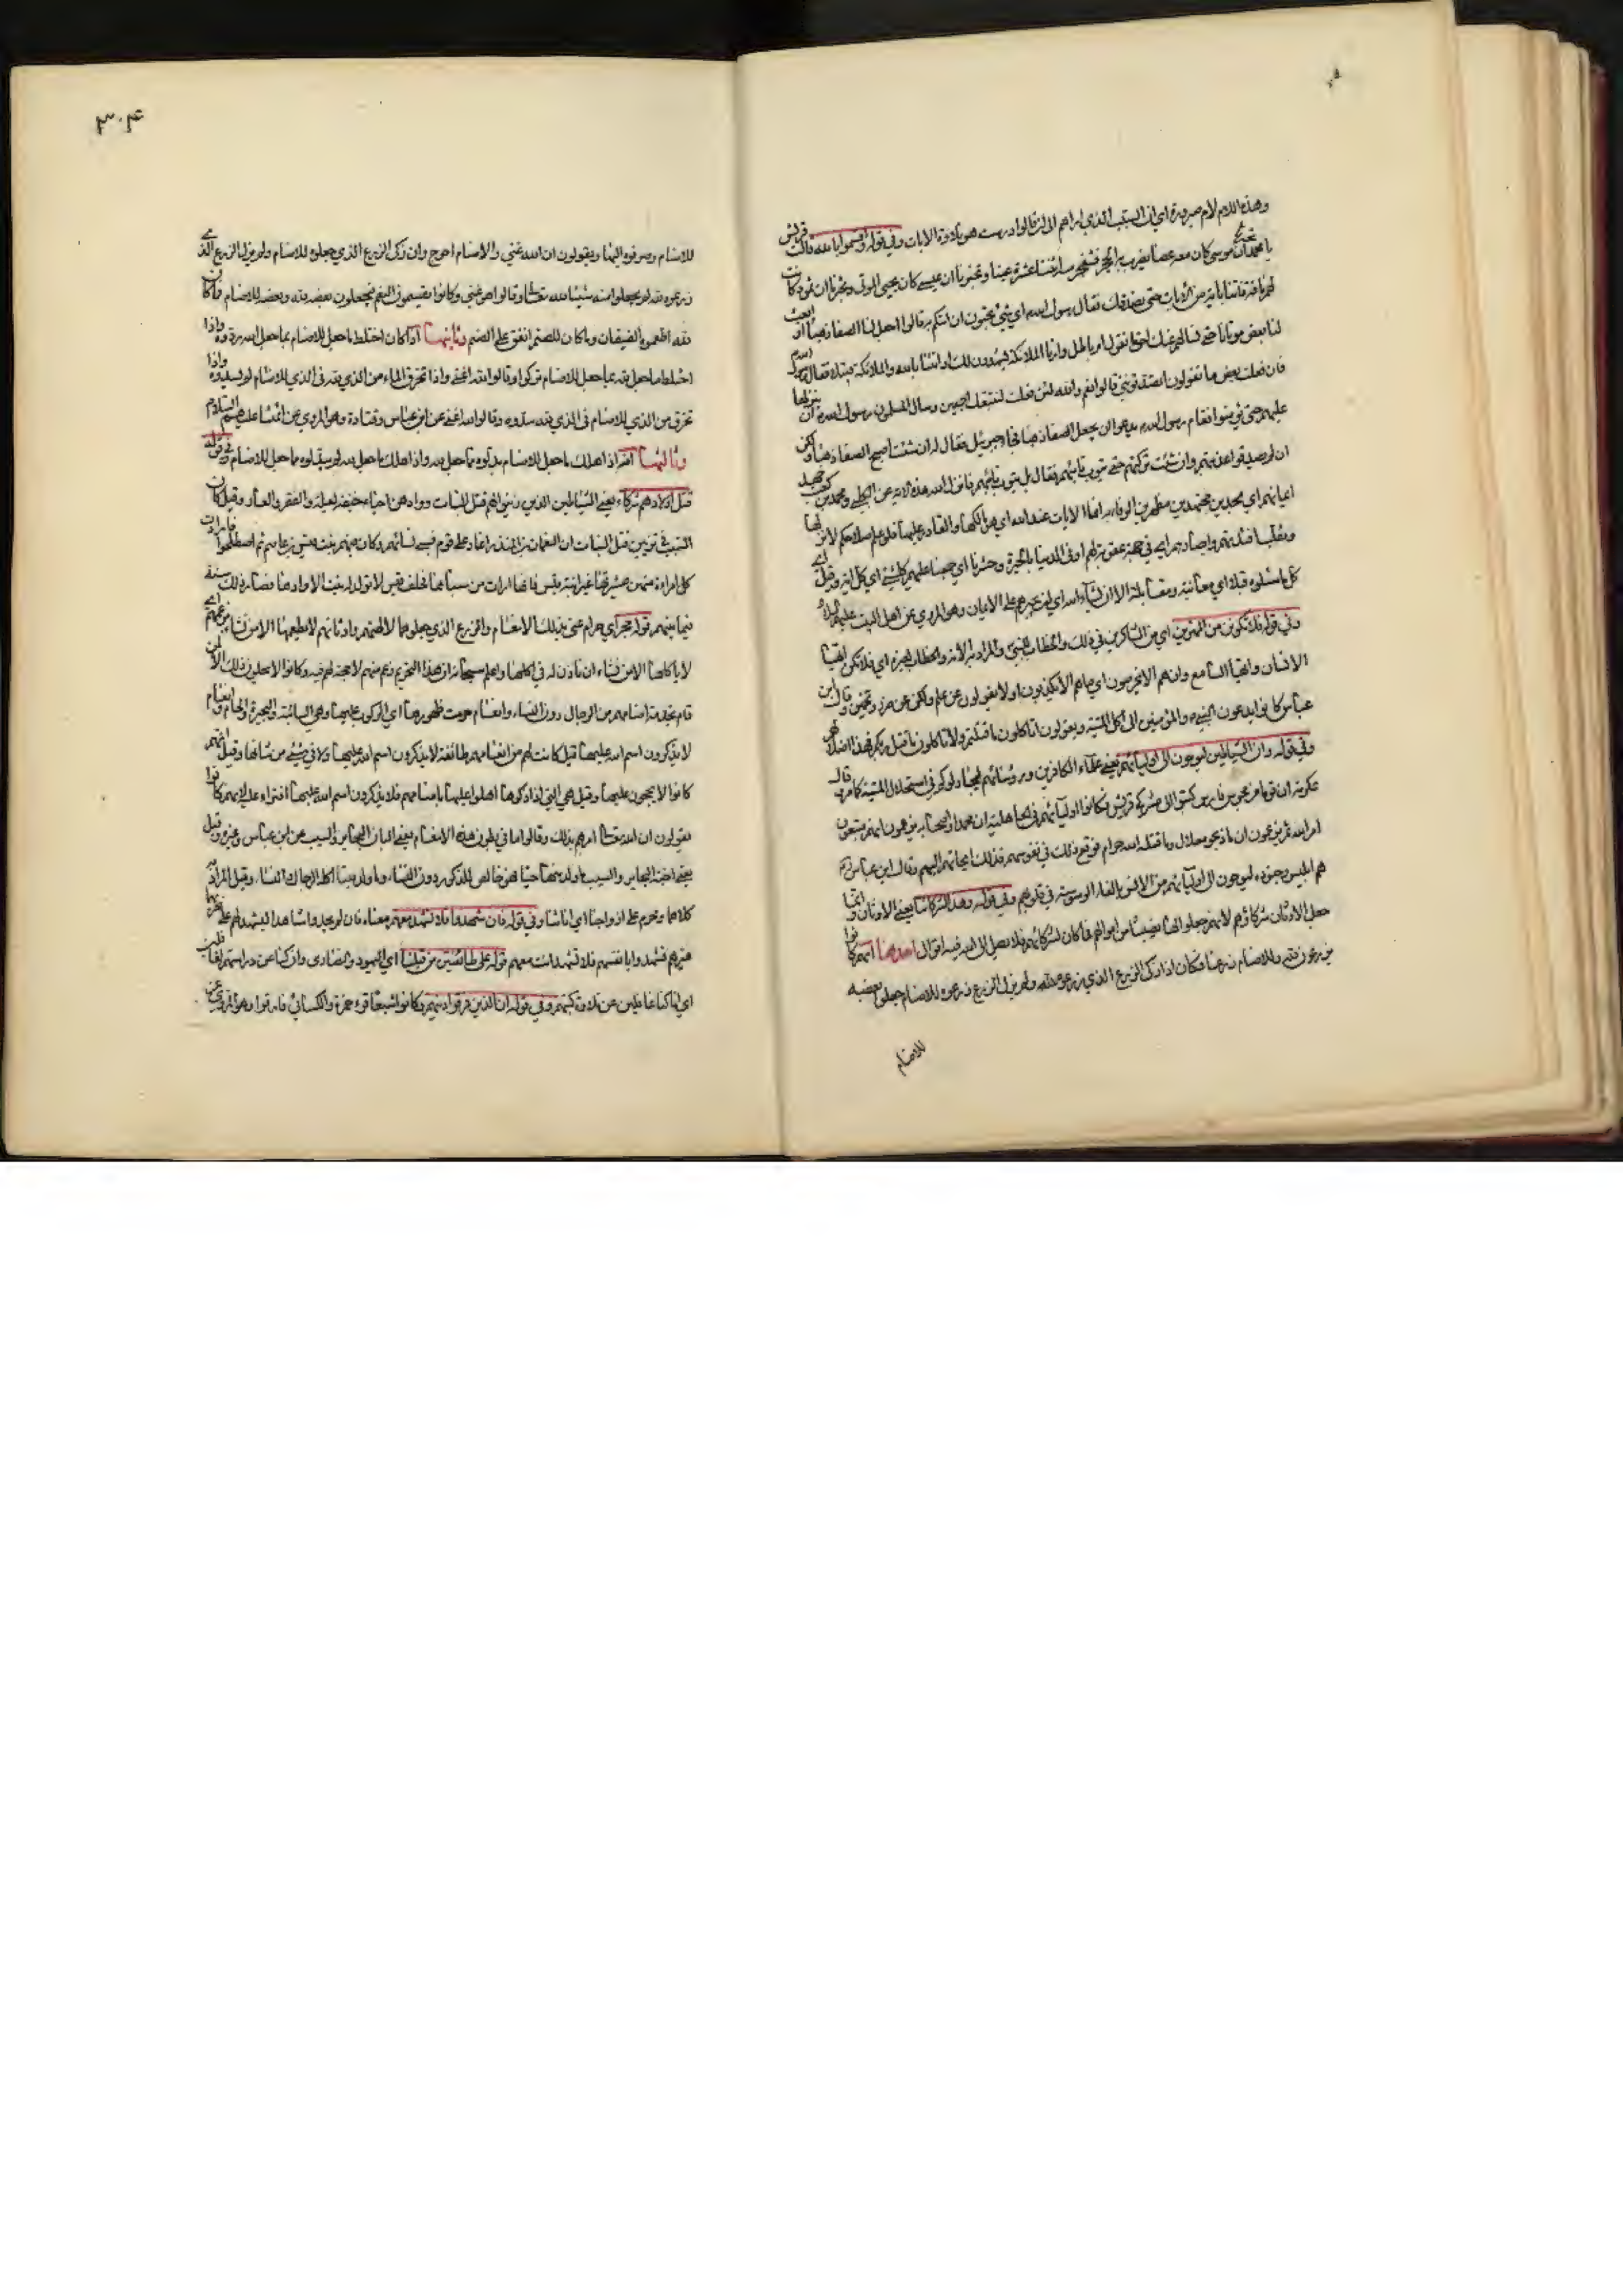 وهذه اللام لام صيرورة اي ان السبب الذي اداهم الى ان قالوا درست هو تلاوة الايات وفي قوله واقسموا بالله قالت قريش
يا محمد تخبرنا ان موسى كان معه عصا يضرب به الحجر فتنفجر منه اثنتا عشرة عينا وتخبرنا ان عيسى كان يحيي الموتى وتخبرنا ان ثمود كانت
لهم ناقة فاتنا باية من الايات حتى نصدقك فقال رسول الله اي شيء تحبون ان اتيكم به قالوا اجعل لنا الصفا ذهبا او ابعث
لنا بعض موتانا حتى نسالهم عنك احق ما تقول ام باطل وارنا الملائكة يشهدون لك او ائتنا بالله والملائكة قبيلا فقال رسول الله
فان فعلت بعض ما تقولون اتصدقونني قالوا نعم والله لئن فعلت لنتبعنك اجمعين وسال المسلمون رسول الله ان ينزلها
عليهم حتى يؤمنوا فقام رسول الله يدعو ان يجعل الصفا ذهبا فجاءه جبرئيل فقال له ان شئت اصبح الصفا ذهبا ولكن
ان لم يصدقوا عذبتهم وان شئت تركتهم حتى يتوب تائبهم فقال بل يتوب تائبهم فانزل الله هذه الاية عن الكلبي ومحمد بن كعب
ايمانهم اي مجدين مجتهدين مظهرين الوفاء به انما الايات عند الله اي هو مالكها والقادر عليها فلو علم صلاحكم لانزلها
ونقلب افئدتهم وابصارهم اي في جهنم عقوبة لهم او في الدنيا بالحيرة وحشرنا اي جمعنا عليهم كل شيء اي كل اية وقيل
كل ما سئلوه قبلا اي معاينة ومقابلة الا ان يشاء الله اي ان يجبرهم على الايمان وهو المروي عن اهل البيت عليهم السلام
وفي قوله فلا تكونن من الممترين اي من الشاكرين في ذلك والخطاب للنبي والمراد به الامة والخطاب لغيره اي فلا تكن ايها
الانسان وايها السامع وان هم الا يخرصون اي ما هم الا يكذبون او لا يقولون عن علم ولكن عن خرص وتخمين وقال ابن
عباس كانوا يدعون النبي والمؤمنين الى اكل الميتة ويقولون اتاكلون ما قتلتم ولا تاكلون ما قتل ربكم فهذا اضلالهم
وفي قوله وان الشياطين ليوحون الى اوليائهم يعني علماء الكافرين ورؤسائهم ليجادلوكم في استحلال الميتة كما مر قال
عكرمة ان قوما من مجوس فارس كتبوا الى مشركي قريش فكانوا اوليائهم في الجاهلية ان محمدا واصحابه يزعمون انهم يتبعون
امر الله ثم يزعمون ان ما ذبحوه حلال وما قتله الله حرام فوقع ذلك في نفوسهم فذلك ايحائهم اليهم وقال ابن عباس
هم ابليس وجنوده ليوحون الى اوليائهم من الانس بالقاء الوسوسة في قلوبهم وفي قوله وهذا لشركائنا يعني الاوثان وانما
جعل الاوثان شركاؤهم لانهم جعلوا لها نصيبا من اموالهم فما كان لشركائهم فلا يصل الى الله فيه اقوال احدها انهم كانوا
يزرعون لله وللاصنام زرعا فكان اذا زكى الزرع الذي زرعوه لله ولم يزك الزرع الذي زرعوه للاصنام جعلوا بعضه
للاصنام
٣٠۴
للاصنام وصرفوه اليها ويقولون ان الله غني والاصنام احوج وان زكى الزرع الذي جعلوه للاصنام ولم يزك الزرع الذي
زرعوه لله لم يجعلوا منه شيئا لله تعالى وقالوا هو غني وكانوا يقسمون النعم فيجعلون بعضه لله وبعضه للاصنام فما كان
لله اطعموه الضيفان وما كان للصنم انفق على الصنم وثانيها اذا كان اختلط ما جعل للاصنام بما جعل لله ردوه واذا
اختلط ما جعل لله بما جعل للاصنام تركوا وقالوا الله اغنى واذا تخرق الماء من الذي لله في الذي للاصنام لم يسدوه واذا
تخرق من الذي للاصنام في الذي لله سدوه وقالوا الله اغنى عن ابن عباس وقتادة وهو المروي عن ائمتنا عليهم السلام
وثالثها انه اذا هلك ما جعل للاصنام بدلوه مما جعل لله واذا هلك ما جعل لله لم يبدلوه مما جعل للاصنام وفي قوله
قتل اولادهم شركاء يعني الشياطين الذين زينوا لهم قتل البنات ووادهن احياء خيفة العيلة والفقر والعار وقيل كان
السبب في تزيين قتل البنات ان النعمان بن المنذر اغار على قوم فسبى نسائهم وكان فيهم بنت قيس بن عاصم ثم اصطلحوا فارادت
كل امراءة منهن عشيرتها غير ابنة قيس فانها ارادت من سباها فحلف قيس لا تولد له بنت الا وادها فصار ذلك سنة
فيما بينهم قوله حجر اي حرام عنى بذلك الانعام والزرع الذي جعلوهما لالهتهم واوثانهم لا يطعمها الا من نشاء بزعمهم اي
لا ياكلها الا من نشاء ان ناذن له في اكلها واعلم سبحانه ان هذا التحريم زعم منهم لا حجة لهم فيه وكانوا لا يحلون ذلك الا لمن
قام بخدمة اصنامهم من الرجال دون النساء وانعام حرمت ظهورها اي الركوب عليها وهي السائبة والبحيرة والحام وانعام
لا يذكرون اسم الله عليها قيل كانت لهم من انعامهم طائفة لا يذكرون اسم الله عليها ولا في شيء من شانها وقيل انهم
كانوا لا يحجون عليها وقيل هي التي اذا ذكوها اهلوا عليها باصنامهم فلا يذكرون اسم الله عليها افتراء على الله لانهم كانوا
يقولون ان الله تعالى امرهم بذلك وقالوا ما في بطون هذه الانعام يعني البان البحاير والسيب عن ابن عباس وغيره وقيل
يعني اجنة البحاير والسيب ما ولد منها حيا فهو خالص للذكور دون النساء وما ولد ميتا اكله الرجال والنساء وقيل المراد به
كلاهما ومحرم على ازواجنا اي اناثنا وفي قوله فان شهدوا فلا تشهد معهم معناه فان لم يجدوا شاهدا يشهد لهم على تحريمها
غيرهم فشهدوا بانفسهم فلا تشهد انت معهم قوله على طائفتين من قبلنا اي اليهود والنصارى وان كنا عن دراستهم لغافلين
اي انا كنا غافلين عن تلاوة كتبهم وفي قوله ان الذين فرقوا دينهم وكانوا شيعا قرء حمزة والكسائي فارقوا وهو المروي عن